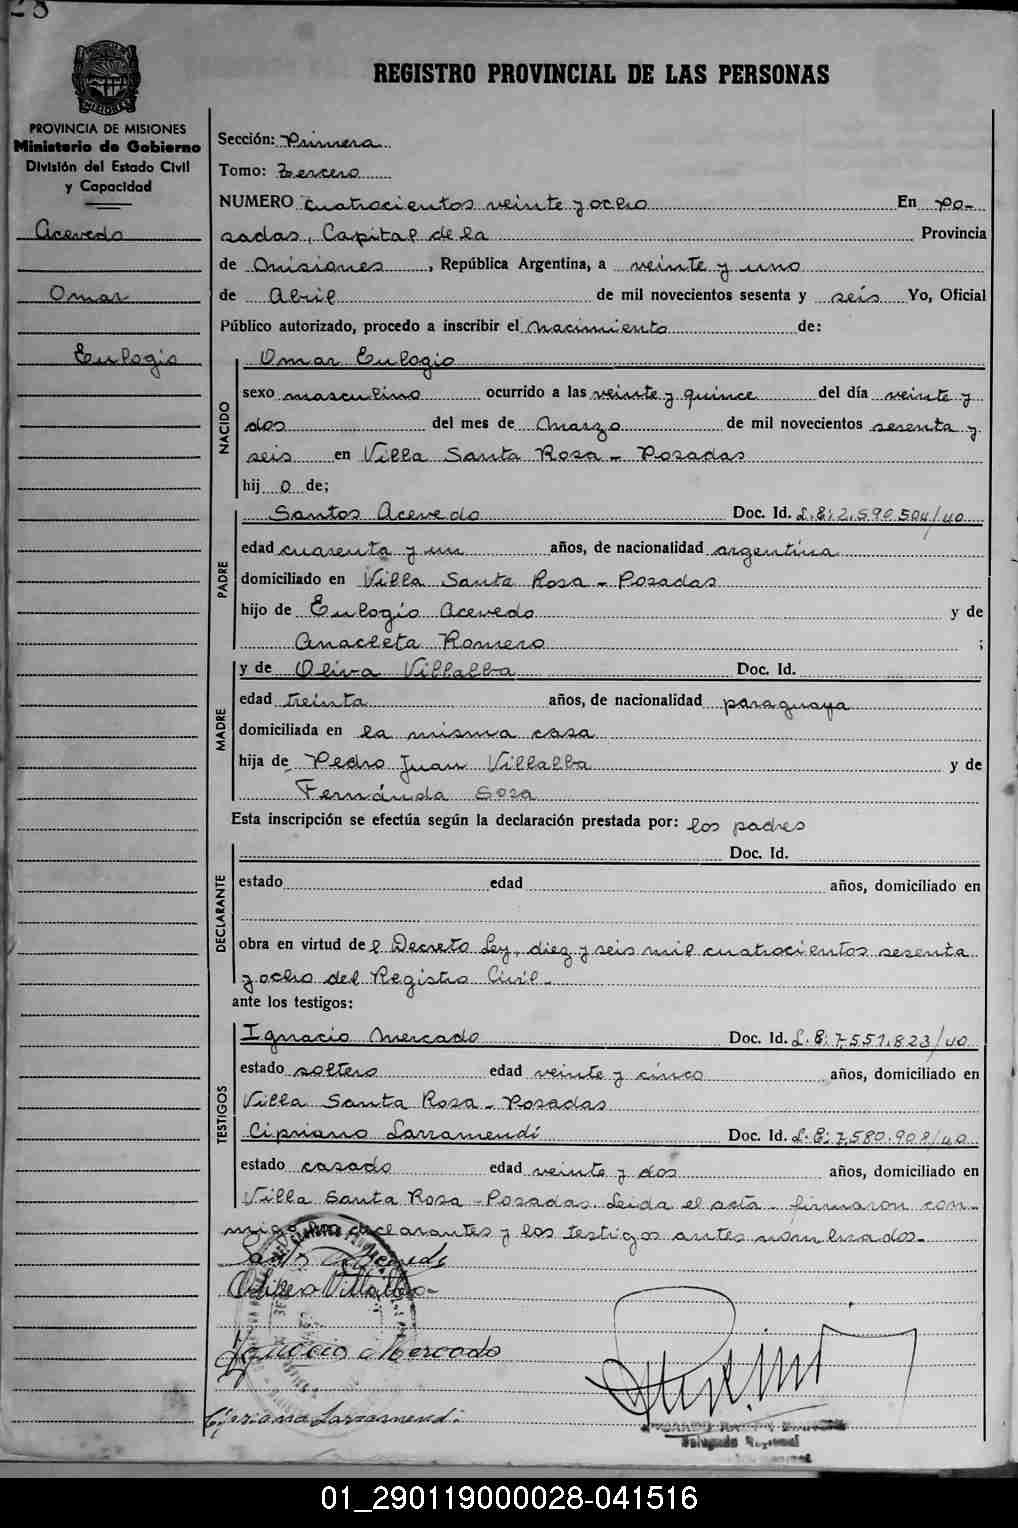 28
REGISTRO PROVINCIAL DE LAS PERSONAS
MISIONES
PROVINCIA DE MISIONES
Ministerio de Gobierno
División del Estado Civil
y Capacidad
Acevedo
Omar
Eulogio
Sección: Primera
Tomo: Tercero
NUMERO cuatrocientos veinte y ocho En Po-
sadas, Capital de la Provincia
de Misiones, República Argentina, a veinte y uno
de Abril de mil novecientos sesenta y seis Yo, Oficial
Público autorizado, procedo a inscribir el nacimiento de:
NACIDO
Omar Eulogio
sexo masculino ocurrido a las veinte y quince del día veinte y
dos del mes de Marzo de mil novecientos sesenta y
seis en Villa Santa Rosa - Posadas
hij o de;
PADRE
Santos Acevedo Doc. Id. L.E: 2.590.504/40
edad cuarenta y un años, de nacionalidad argentina
domiciliado en Villa Santa Rosa - Posadas
hijo de Eulogio Acevedo y de
Anacleta Romero ;
MADRE
y de Oliva Villalba Doc. Id.
edad treinta años, de nacionalidad paraguaya
domiciliada en la misma casa
hija de Pedro Juan Villalba y de
Fernánda Sosa
Esta inscripción se efectúa según la declaración prestada por: los padres
DECLARANTE
Doc. Id.
estado edad años, domiciliado en
obra en virtud del Decreto Ley, diez y seis mil cuatrocientos sesenta
y ocho del Registro Civil.-
ante los testigos:
TESTIGOS
Ignacio Mercado Doc. Id. L.E: 7.551.823/40
estado soltero edad veinte y cinco años, domiciliado en
Villa Santa Rosa - Posadas
Cipriano Larramendi Doc. Id. L.E: 7.580.908/40
estado casado edad veinte y dos años, domiciliado en
Villa Santa Rosa - Posadas. Leida el acta - firmaron con-
migo los declarantes y los testigos antes nombrados.-
Villalba-
Ignacio Mercado
Cipriano Larramendi.
Delegado Regional
01_290119000028-041516